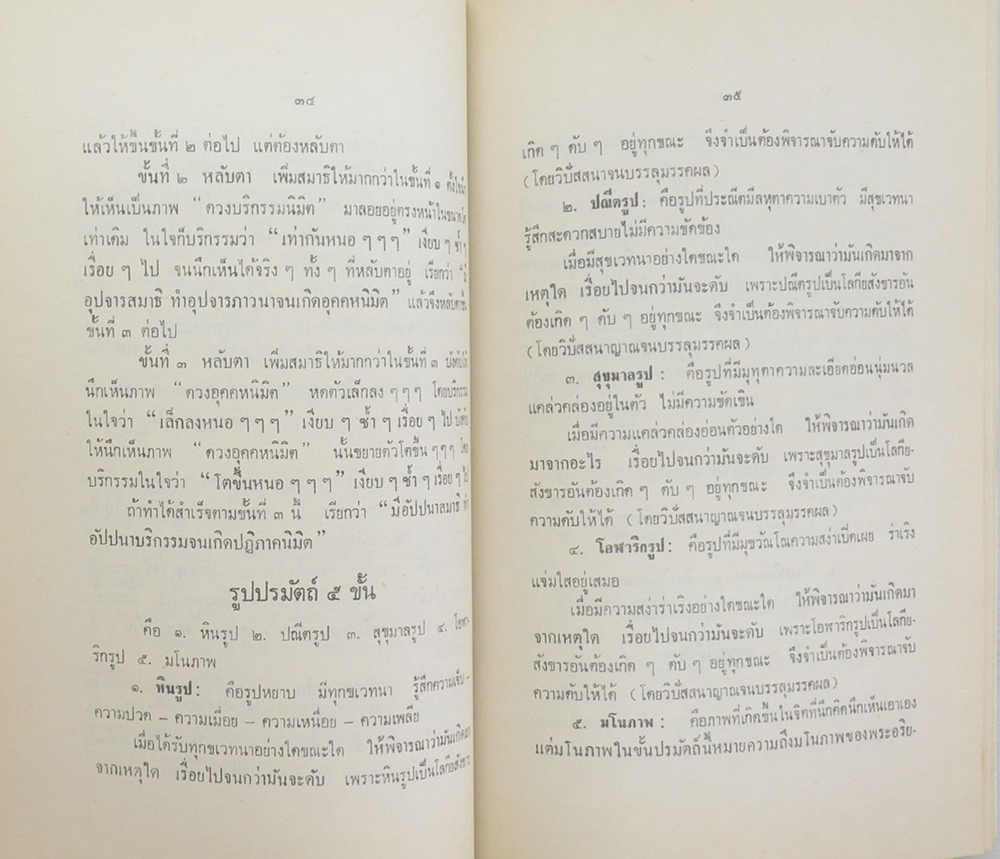 ๓๔
แล้วให้ขึ้นขั้นที่ ๒ ต่อไป แต่ต้องหลับตา
ขั้นที่ ๒ หลับตา เพิ่มสมาธิให้มากกว่าในขั้นที่ ๑
ให้เห็นเป็นภาพ “ดวงบริกรรมนิมิต” มาลอยอยู่ตรงหน้าในขนาด
เท่าเดิม ในใจก็บริกรรมว่า “เท่ากันหนอ ๆ ๆ ๆ” เงียบ ๆ ซ้ำ ๆ
เรื่อย ๆ ไป จนนึกเห็นได้จริง ๆ ทั้ง ๆ ที่หลับตาอยู่ เรียกว่า
อุปจารสมาธิ ทำอุปจารภาวนาจนเกิดอุคคหนิมิต” แล้วจึงหลับตา
ขั้นที่ ๓ ต่อไป
ขั้นที่ ๓ หลับตา เพิ่มสมาธิให้มากกว่าในขั้นที่ ๓
นึกเห็นภาพ “ดวงอุคคหนิมิต” หดตัวเล็กลง ๆ ๆ ๆ โดยบริกรรม
ในใจว่า “เล็กลงหนอ ๆ ๆ ๆ” เงียบ ๆ ซ้ำ ๆ เรื่อย ๆ ไป บังคับ
ให้นึกเห็นภาพ “ดวงอุคคหนิมิต” นั้นขยายตัวโตขึ้น ๆ ๆ ๆ โดย
บริกรรมในใจว่า “โตขึ้นหนอ ๆ ๆ ๆ” เงียบ ๆ ซ้ำ ๆ เรื่อย ๆ ไป
ถ้าทำได้สำเร็จตามขั้นที่ ๓ นี้ เรียกว่า “มีอัปปนาสมาธิ ทำ
อัปปนาบริกรรมจนเกิดปฏิภาคนิมิต”
รูปปรมัตถ์ ๕ ขั้น
คือ ๑. หินรูป ๒. ปณีตรูป ๓. สุขุมาลรูป ๔. โอฬา-
ริกรูป ๕. มโนภาพ
๑. หินรูป: คือรูปหยาบ มีทุกขเวทนา รู้สึกความเจ็บ –
ความปวด – ความเมื่อย – ความเหนื่อย – ความเพลีย
เมื่อได้รับทุกขเวทนาอย่างใดขณะใด ให้พิจารณาว่ามันเกิดมา
จากเหตุใด เรื่อยไปจนกว่ามันจะดับ เพราะหินรูปเป็นโลกียสังขาร
๓๕
เกิด ๆ ดับ ๆ อยู่ทุกขณะ จึงจำเป็นต้องพิจารณาจับความดับให้ได้
(โดยวิปัสสนาจนบรรลุมรรคผล)
๒. ปณีตรูป: คือรูปที่ประณีตมีลหุตาความเบาตัว มีสุขเวทนา
รู้สึกสะดวกสบายไม่มีความขัดข้อง
เมื่อมีสุขเวทนาอย่างใดขณะใด ให้พิจารณาว่ามันเกิดมาจาก
เหตุใด เรื่อยไปจนกว่ามันจะดับ เพราะปณีตรูปเป็นโลกียสังขารอัน
ต้องเกิด ๆ ดับ ๆ อยู่ทุกขณะ จึงจำเป็นต้องพิจารณาจับความดับให้ได้
(โดยวิปัสสนาญาณจนบรรลุมรรคผล)
๓. สุขุมาลรูป: คือรูปที่มีมุทุตาความละเอียดอ่อนนุ่มนวล
แคล่วคล่องอยู่ในตัว ไม่มีความขัดเขิน
เมื่อมีความแคล่วคล่องอ่อนตัวอย่างใด ให้พิจารณาว่ามันเกิด
มาจากอะไร เรื่อยไปจนกว่ามันจะดับ เพราะสุขุมาลรูปเป็นโลกีย-
สังขารอันต้องเกิด ๆ ดับ ๆ อยู่ทุกขณะ จึงจำเป็นต้องพิจารณาจับ
ความดับให้ได้ (โดยวิปัสสนาญาณจนบรรลุมรรคผล)
๔. โอฬาริกรูป: คือรูปที่มีมุขวัณโณความสง่าเปิดเผย ร่าเริง
แจ่มใสอยู่เสมอ
เมื่อมีความสง่าร่าเริงอย่างใดขณะใด ให้พิจารณาว่ามันเกิดมา
จากเหตุใด เรื่อยไปจนกว่ามันจะดับ เพราะโอฬาริกรูปเป็นโลกีย-
สังขารอันต้องเกิด ๆ ดับ ๆ อยู่ทุกขณะ จึงจำเป็นต้องพิจารณาจับ
ความดับให้ได้ (โดยวิปัสสนาญาณจนบรรลุมรรคผล)
๕. มโนภาพ: คือภาพที่เกิดขึ้นในจิตที่นึกคิดนึกเห็นเอาเอง
แต่มโนภาพในขั้นปรมัตถ์นี้หมายความถึงมโนภาพของพระอริย-